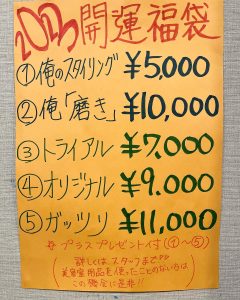 2023開運福袋
①俺のスタイリング ¥5,000
②俺「磨き」 ¥10,000
③トライアル ¥7,000
④オリジナル ¥9.000
⑤ガッツリ ¥11,000
プラスプレゼント付(①〜⑤)
詳しくはスタッフまで
美容室用品を使ったことのない方は
この機会に是非!!